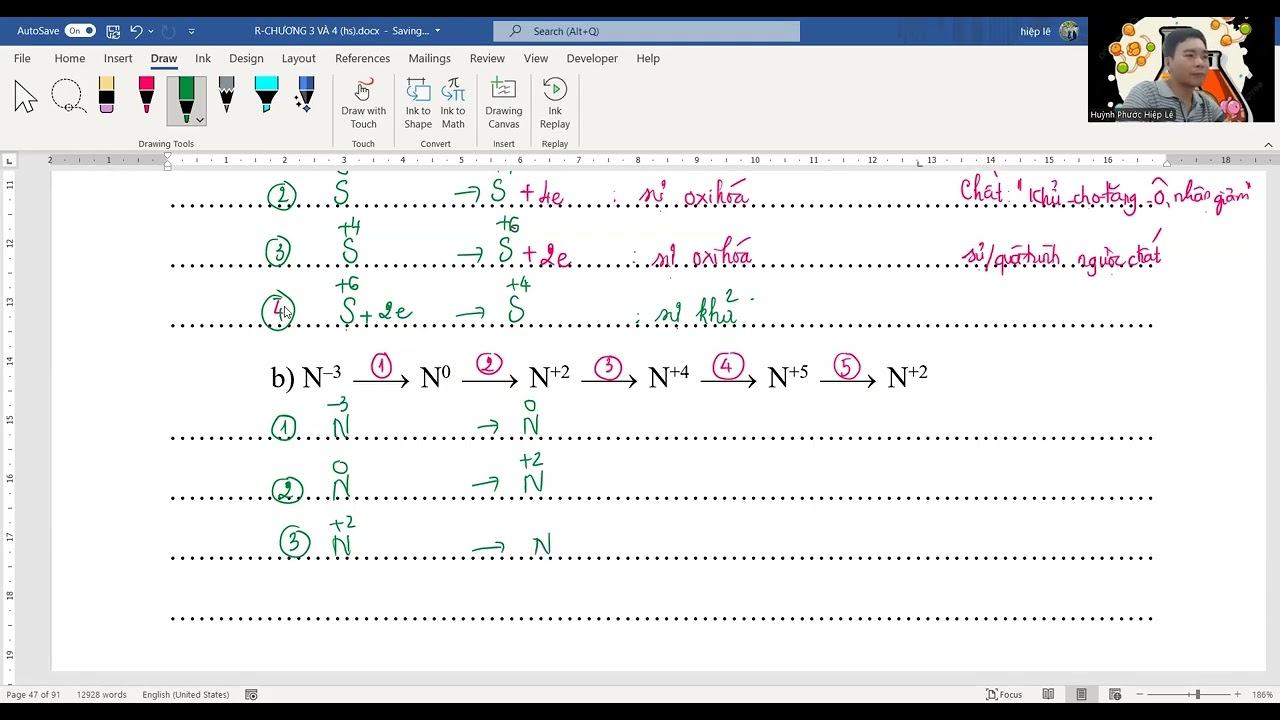 AutoSave On R-CHƯƠNG 3 VÀ 4 (hs).docx - Saving... Search (Alt+Q) hiệp lê
File Home Insert Draw Ink Design Layout References Mailings Review View Developer Help
Huỳnh Phước Hiệp Lê
Draw with Touch Ink to Shape Ink to Math Drawing Canvas Ink Replay
Drawing Tools Touch Convert Insert Replay
2 1 1 2 3 4 5 6 7 8 9 10 11 12 13 14 15 16 17 18
② S → S + 4e : sự oxi hóa Chất: "Khử cho tăng - O nhận giảm"
③ S+4 → S+6 + 2e : sự oxi hóa sự/quá trình ngược chất
④ S+6 + 2e → S+4 : sự khử
b) N–3 ① → N0 ② → N+2 ③ → N+4 ④ → N+5 ⑤ → N+2
① N–3 → N0
② N0 → N+2
③ N+2 → N
Page 47 of 91 12928 words English (United States) Focus 186%